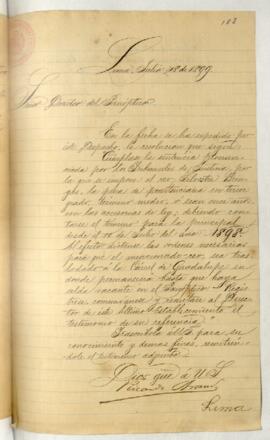 103
Lima, Julio 18 de 1899.
Señor Director del Panóptico
En la fecha se ha expedido por
este Despacho, la resolución que sigue:
"Cúmplase la sentencia pronun-
ciada por los Tribunales de Justicia por
la que se impone al reo
la pena de penitenciaría en tercer
grado, término medio, ó sean
con las accesorias de ley; debiendo con-
tarse el término para la principal
desde el 18 de Julio del año 1898.
Al efecto díctense las ordenes necesarias
para que el mencionado reo, sea tras-
ladado a la Cárcel de Guadalupe en
donde permanecerá hasta que haya
celda vacante en el Panóptico. Regís-
trese, comuníquese y remítase al Direc-
tor de este último Establecimiento el
testimonio de su referencia."
Trascríbolo á US. para su
conocimiento y demas fines, remitién-
dole el testimonio adjunto.
Dios gue. á US.
Ricardo
Lima